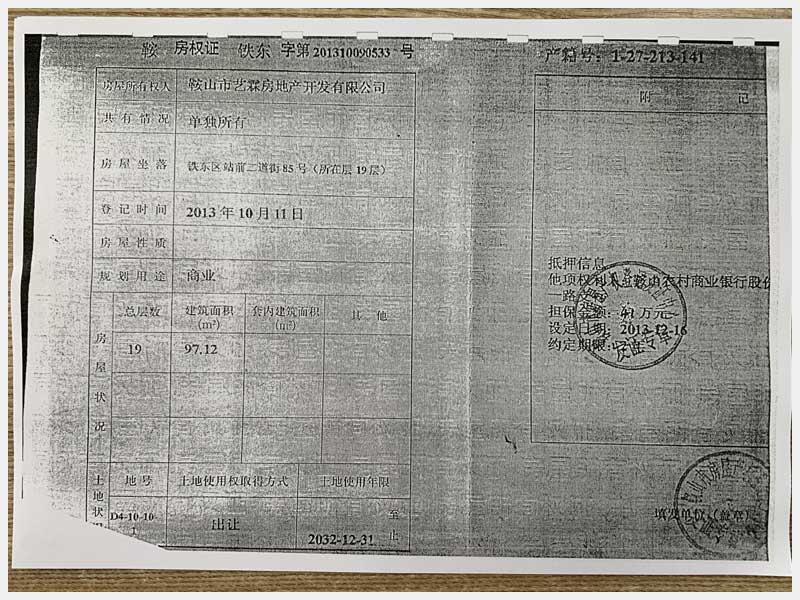 鞍 房权证 铁东 字第 201310090533 号
产籍号：1-27-213-141
房屋所有权人 鞍山市艺霖房地产开发有限公司
共有情况 单独所有
房屋坐落 铁东区站前二道街85号（所在层19层）
登记时间 2013年10月11日
房屋性质
规划用途 商业
房屋状况
总层数 建筑面积（m²） 套内建筑面积（m²） 其他
19 97.12
土地状况
地号 土地使用权取得方式 土地使用年限
D4-10-10 出让 2032-12-31 至 止
附 记
抵押信息
他项权利人 鞍山农村商业银行股份
一路支
担保金额： 万元
设定日期：2013-12-16
约定期限：
填发单位（盖章）